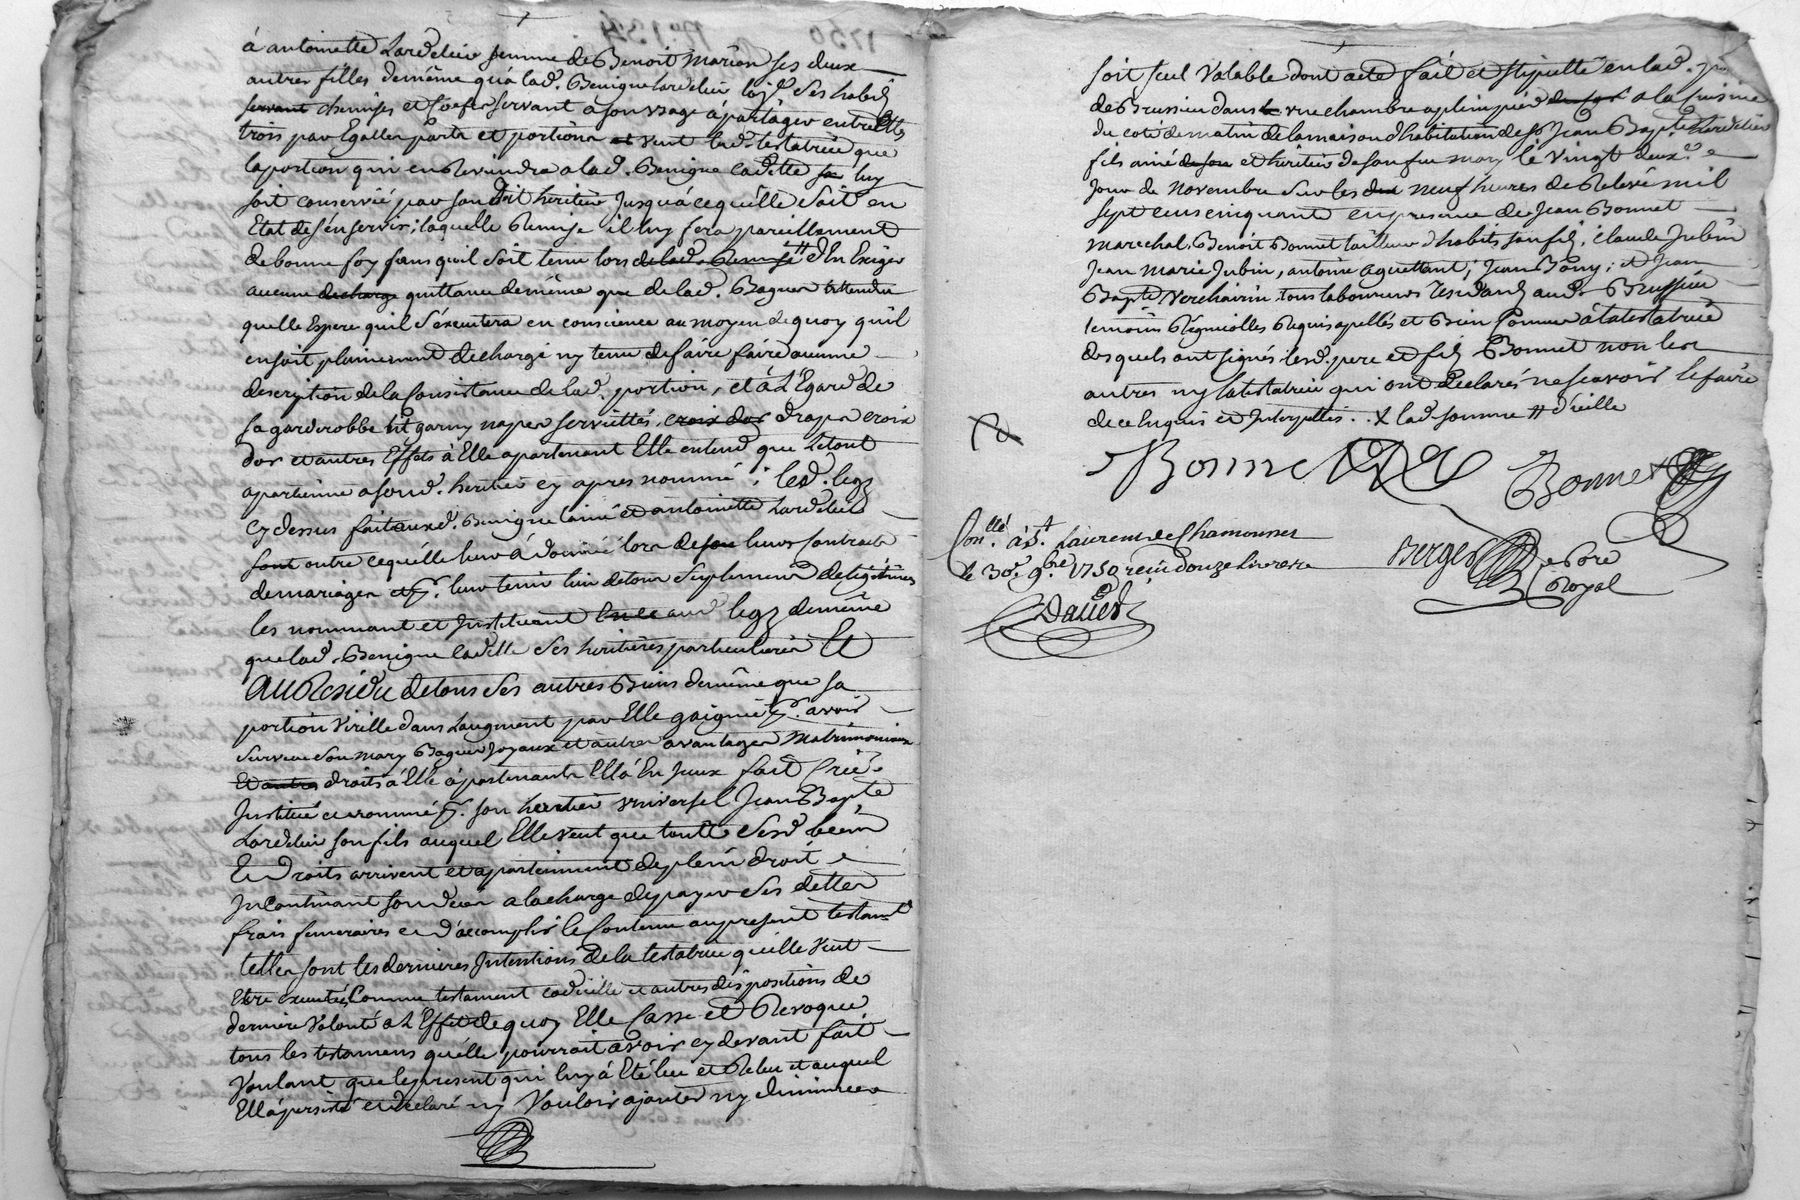 à antoinette Lardelier femme de Benoit Marion ses deux
autres filles demême qu'à lad. Benigne Lardelier ses habits
servant chemises et coefes servant a son usage à partager entrelles
trois par Egalles parts et portions et veut lad. testatrice que
la portion qui en Reviendra a lad. Benigne Cadette soit luy
soit conservé par son dit heritier Jusqu'á cequ'elle soit en
Etat de s'en servir; laquelle Remise il luy fera pareillement
de bonne foy sans quil soit tenu lors de lad. Remise # d'En Exiger
aucune decharge quittance demême que de lad. Bagues attendu
quelle Espere quil s'éxecutera en conscience au moyen de quoy quil
en soit plainement dechargé ny tenu de faire faire aucune
description de la Consistance de lad. portion, et à L'Egard de
sa garderobbe lit garny napes serviettes, croix dor draps croix
dor et autres Effets à Elle apartenant Elle entend que Letout
apartienne a sond. heritier cy apres nommé; lesd. legz
Cy dessus fait auxd. Benigne lainé et antoinette Lardelier
sont outre cequ'elle leur á donnée lors de son leurs Contracts
de mariages et pr. leur tenir lieu de tout Suplement de legitimes
les nommant et Justituant aud. legz demême
que lad. Benigne Cadette Ses heritières particulières Et
AU Residu de tous Ses autres Biens demême que sa
portion Virille dans Laugment par Elle gaignée pr. avoir
Survecu Son mary Bagues Joyaux et autres avantages Matrimoniaux
Et autres droits à Elle apartenants Ellá En Jceux fait Créé
Justitué et nommé pr. son heritier vniversel Jean Bapte
Lardelier son fils auquel Elle veut que touts Sesd. biens
Et Droits arrivent et apartiennent de plein droit
Jncontinant son décés a la charge de payer Ses dettes
frais funeraires et d'accomplir le Contenu au present testamt
telles sont les dernieres Jntentions de la testatrice qu'elle veut
Etre executées Comme testament codicille et autres dispositions de
derniere Volonté a L'Effet de quoy Elle Casse et Revoque
tous les testamens qu'elle pourrait avoir cy devant fait
Voulant que le present qui luy à Eté leu et Releu et auquel
Ellá persisté et declaré ny Vouloir ajouter ny diminuer
soit seul Valable dont acte fait et stipullé en lad.
de Brussieu dans vne chambre aplinpied a la Cuisine
du coté de matin de la maison d'habitation de Jean Bapte Lardelier
fils ainé de son et héritier de son feu mary le vingt deux.e
Jour de Novembre Sur les neuf heures de Relevé mil
sept cens cinquante en presence de Jean Bonnet
marechal, Benoit Bonnet tailleur d'habits son fils, Claude Jubin
Jean Marie Jubin, antoine aguettant, Jean Bony; et Jean
Bapte Verchairin tous laboureurs Residants aud. Brussieu
temoins Régnicolles Requis apellés et Bien Connus á la testatrice
desquels ont signés lesd. pere et fils Bonnet non les
autres ny la testatrice qui ont déclarés ne scavoir le faire
de ce Enquis et Interpellés . . X lad somme # d'icelle
Bonnet
Bonnet
Conllé. à St. Laurent de Chamousset
le 30e. 9bre 1750 reçu douze livres
Daved
Berger
No.re
Royal